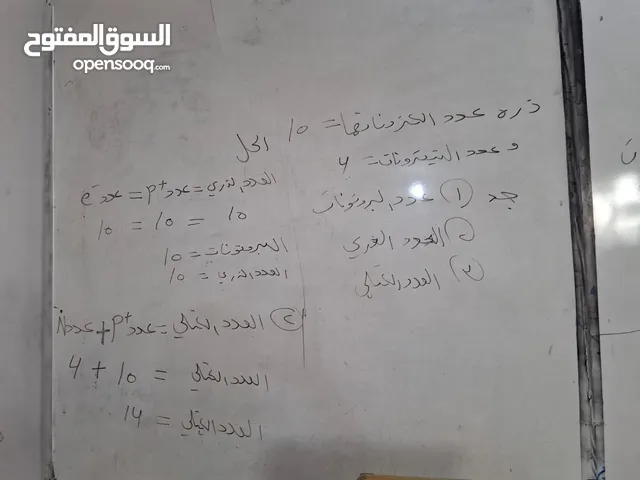 السوق المفتوح
opensooq.com
ذره عدد الكتروناتها = 10
وعدد النيترونات = 4
جد ① عدد البروتونات
② العدد الذري
③ العدد الكتلي
الحل
العدد الذري = عدد P+ = عدد e-
10 = 10 = 10
البروتونات = 10
العدد الذري = 10
② العدد الكتلي = عدد P+ + عدد N
العدد الكتلي = 10 + 4
العدد الكتلي = 14